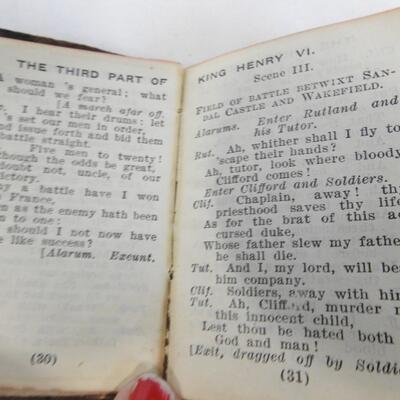 THE THIRD PART OF
A woman's general; what
should we fear?
[A march afar off.
I hear their drums: let
's set our men in order,
and issue forth and bid them
battle straight.
Five men to twenty!
though the odds be great,
doubt not, uncle, of our
victory.
a battle have I won
France,
as the enemy hath been
to one:
should I not now have
like success?
[Alarum. Exeunt.
(30)
KING HENRY VI.
Scene III.
FIELD OF BATTLE BETWIXT SAN-
DAL CASTLE AND WAKEFIELD.
Alarums. Enter Rutland and
his Tutor.
Rut. Ah, whither shall I fly to
'scape their hands?
Ah, tutor, look where bloody
Clifford comes!
Enter Clifford and Soldiers.
Clif. Chaplain, away! thy
priesthood saves thy life
As for the brat of this ac
cursed duke,
Whose father slew my father
he shall die.
Tut. And I, my lord, will bear
him company.
Clif. Soldiers, away with him
Tut. Ah, Clifford, murder n
this innocent child,
Lest thou be hated both
God and man!
[Exit, dragged off by Soldie
(31)